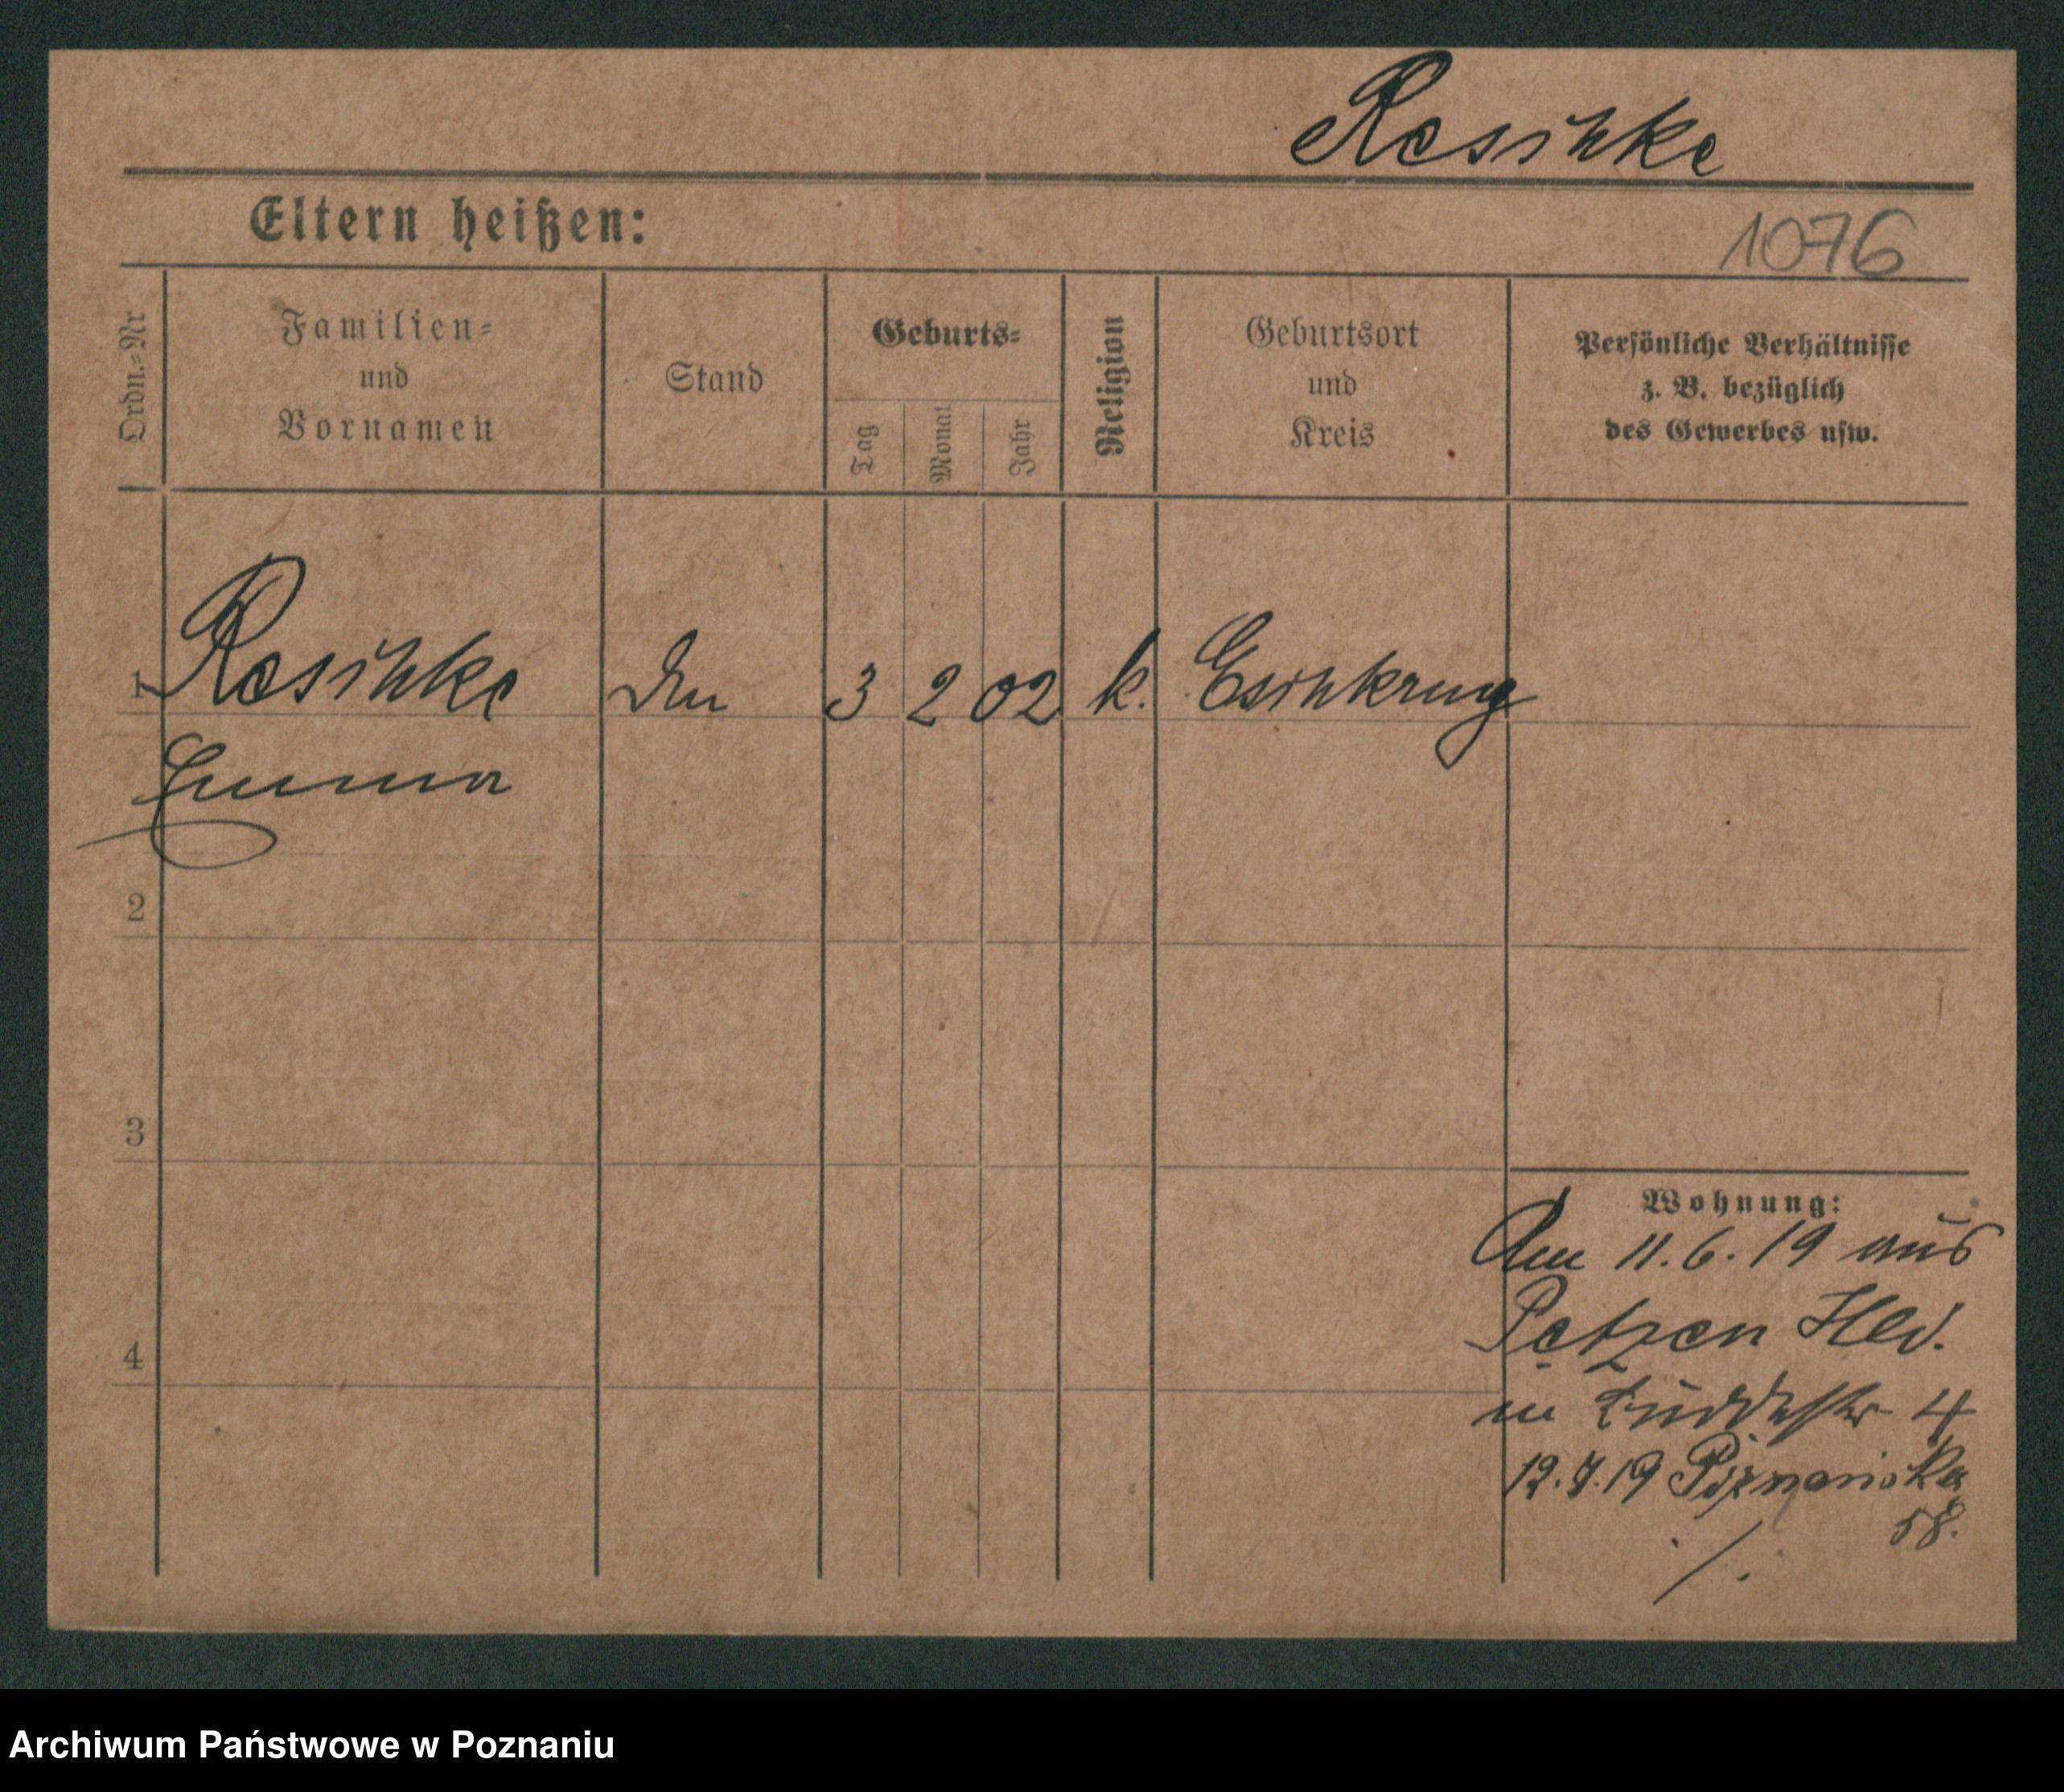 Reschke
Eltern heißen:
1076
Ordn.=Nr
Familien=
und
Vornamen
Stand
Geburts=
Tag
Monat
Jahr
Religion
Geburtsort
und
Kreis
Persönliche Verhältnisse
z. B. bezüglich
des Gewerbes usw.
1 Reschke 3 2 02 k. Eschkrug
Emma
2
3
4
Wohnung:
Am 11.6.19 aus
Petzen Hld.
in 4
12.7.19 Poznanska
58.
./.
Archiwum Państwowe w Poznaniu